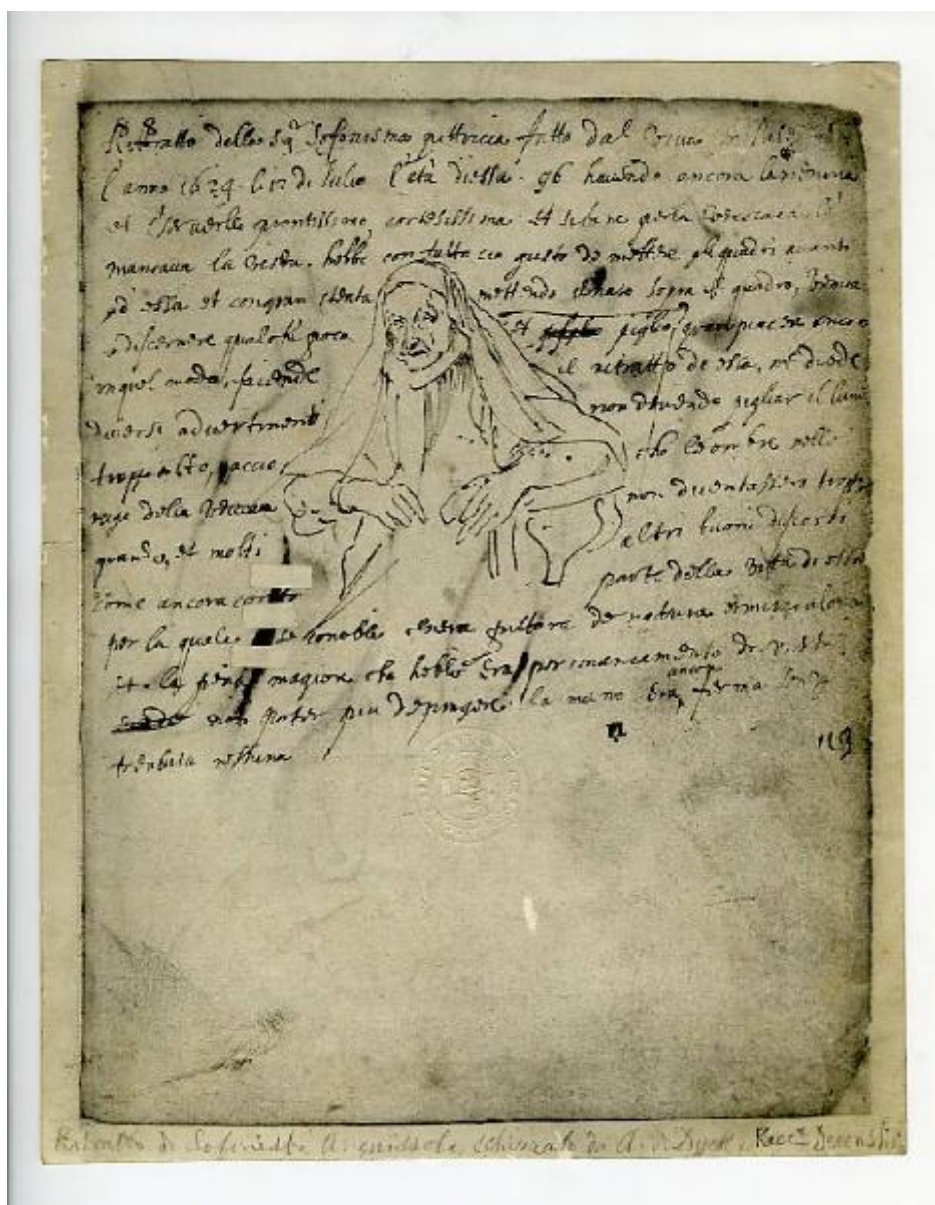 Rittratto della Sig.ra Sofonisma pittricia fatto dal vivo in
l'anno 1624 li 12 di Julio l'età di essa. 96 havendo ancora la memoria
et cervello prontissimo, cortesissima et sebene per la
mancava la vista. hebbe con tutto cio gusto de mettere gli quadri avanti
ad essa et con gran stenta mettendo il naso sopra il quadro,
discernere qualche poco et piglio gran piacere ancora
in quel modo, facendo il ritratto de essa, me diede
diversi advertimenti non devendo pigliar il lume
troppo alto, accio che le ombre nelle
ruge della vecciaia non diventassero troppo
grande, et molti altri buoni discorsi
come ancora conto parte della vita di essa
per la quale se conobbe pittora de natura et miraculosa
et la pena magiore che hebbe era per mancamento di vista
non poter piu depingere la mano era ancora ferma senza
tremula nessuna
Ritratto di A. schizzato da A. v. Dyck